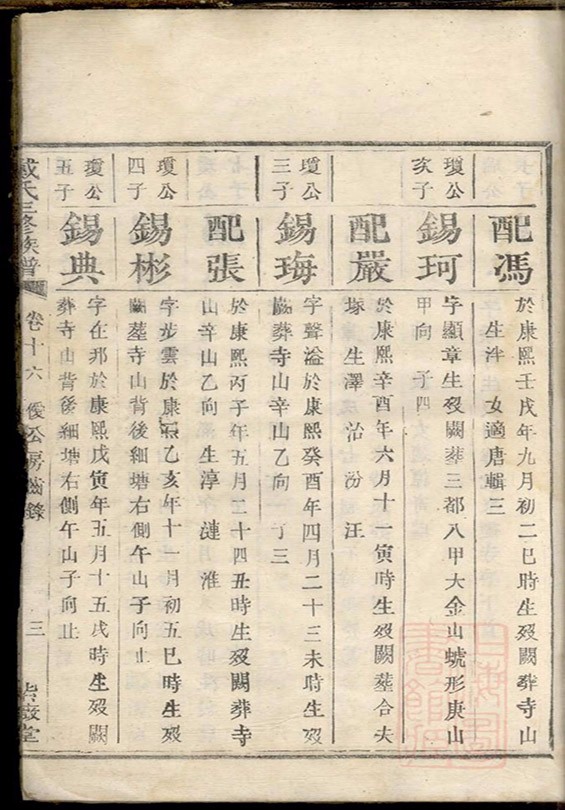 配馮
於康熙壬戌年九月初二巳時生歿闕葬寺山
生泮 女適唐輯三
瓊公
次子
錫珂
字顯章生歿闕葬三都八甲大金山虓形庚山
甲向 子四
配嚴
於康熙辛酉年六月十一寅時生歿闕葬合夫
塚 生澤 治 汾 汪
瓊公
三子
錫珻
字聲溢於康熙癸酉年四月二十三未時生歿
闕葬寺山辛山乙向 丁三
配張
於康熙丙子年五月二十四丑時生歿闕葬寺
山辛山乙向 生淳 漣 淮
瓊公
四子
錫彬
字步雲於康熙乙亥年十一月初五巳時生歿
闕葬寺山背後細塘右側午山子向止
瓊公
五子
錫典
字在邦於康熙戊寅年五月十五戌時生歿闕
葬寺山背後細塘右側午山子向止
氏三修族譜
卷十六
公房齒錄
三
堂